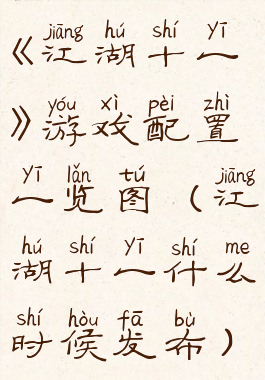 jiāng hú shí yī
《江湖十一
yóu xì pèi zhì
》游戏配置
yī lǎn tú jiāng
一览图（江
hú shí yī shí me
湖十一什么
shí hòu fā bù
时候发布）